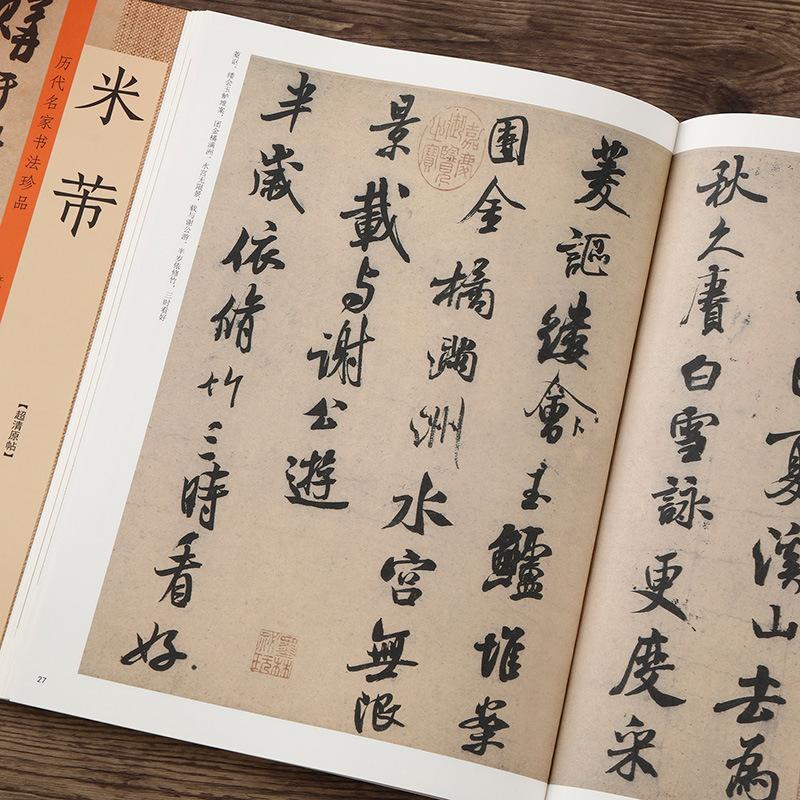 夏溪山去為
秋久賡白雪詠更度采
菱謳縷會玉鱸堆案
團金橘滿洲水宮無限
景載与謝公遊
半歲依脩竹三時看好
嘉慶御覽之寶
菱讴，缕会玉鲈堆案，团金橘满洲。水宫无限景，载与谢公游。半岁依修竹，三时看好
27
米芾
历代名家书法珍品
【超清原帖】